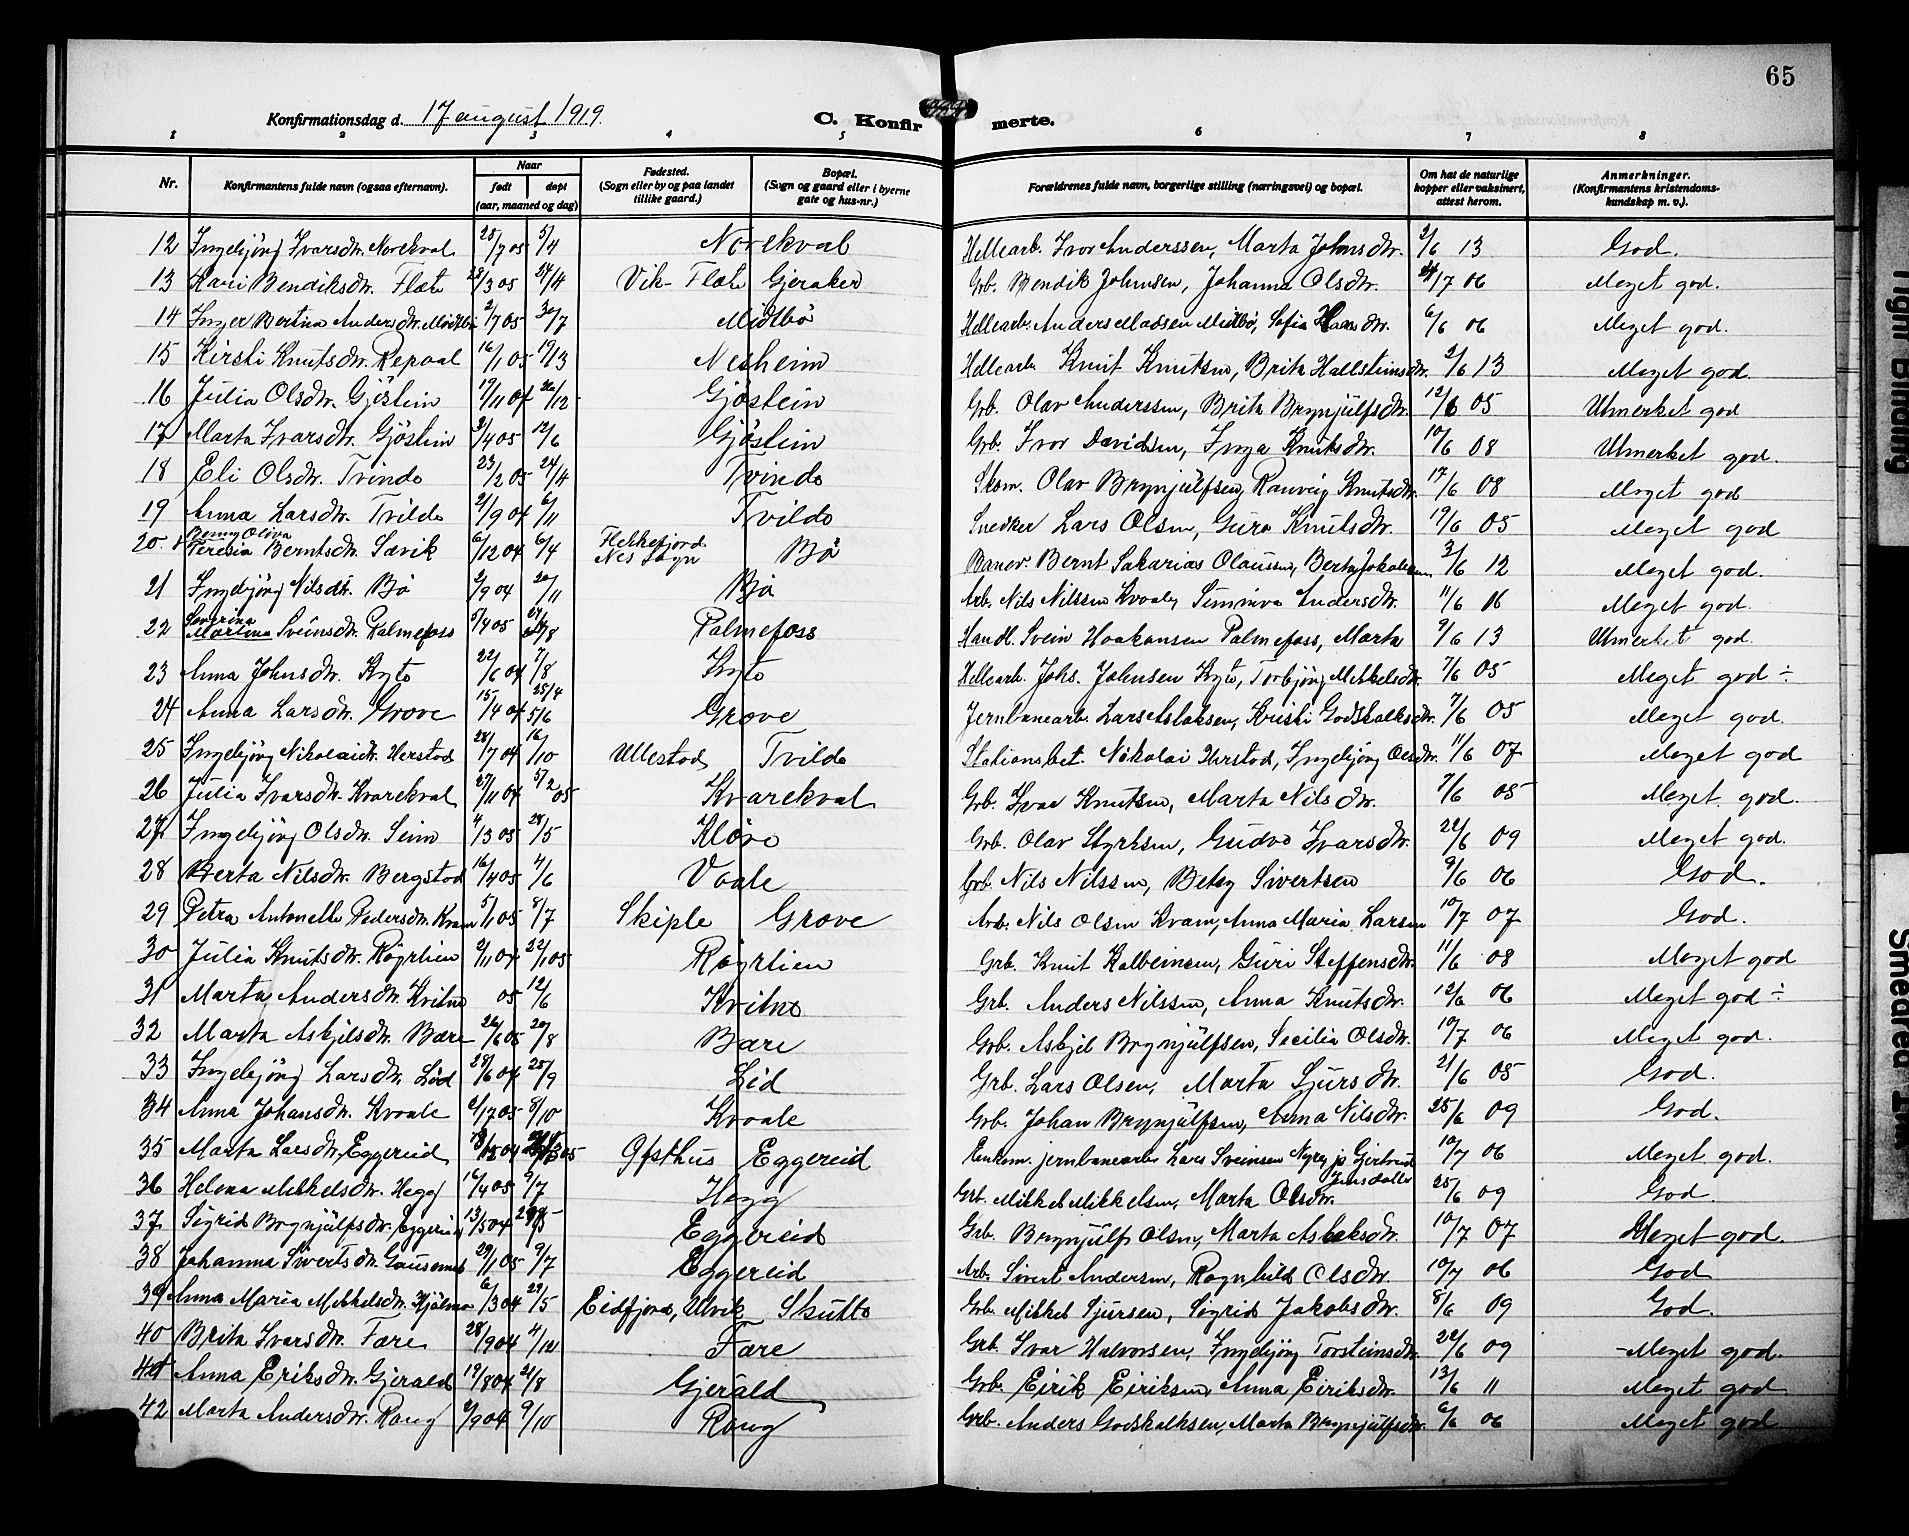 65
Konfirmationsdag d. 17 august 1919.
C. Konfirmerte.
1 2 3 4 5 6 7 8
Nr. Konfirmantens fulde navn (ogsaa efternavn). Naar født døpt (aar, maaned og dag) Fødested. (Sogn eller by og paa landet tillike gaard.) Bopæl. (Sogn og gaard eller i byerne gate og hus-nr.) Forældrenes fulde navn, borgerlige stilling (næringsvei) og bopæl. Om hat de naturlige kopper eller vaksinert, attest herom. Anmerkninger. (Konfirmantens kristendoms-kundskap m. v.).
12 Ingebjörg Ivarsdtr. Norekval 25/7 05 5/4 Norekval Hellearb. Ivor Anderssen, Marta Johnsdtr. 2/6 13 God.
13 Kari Bendiksdtr. Flæte 28/3 05 24/4 Vik- Flæte Gjeraker Grb. Bendik Johnsen, Johanna Olsdtr. 24/7 06 Meget god.
14 Inger Bertina Andersdtr. Midtbö 2/7 05 30/7 Midtbö Hellearb. Anders Madsen Midtbö, Sofia Hansdtr. 6/6 06 Meget god.
15 Kirsti Knutsdtr. Repaal 16/1 05 19/3 Nesheim Hellearb. Knut Knutsen, Brita Hallsteinsdtr. 2/6 13 Meget god.
16 Julia Olsdtr. Gjöstein 17/11 04 26/12 Gjöstein Grb. Olav Anderssen, Brita Brynjülfsdtr. 12/6 05 Utmerket god
17 Marta Ivarsdtr. Gjöstein 3/4 05 12/6 Gjöstein Grb. Ivor Davidsen, Inga Knutsdtr. 10/6 08 Utmerket god.
18 Eli Olsdtr. Tvinde 23/2 05 24/4 Tvinde Skom. Olav Brynjülfsen, Ranveig Knutsdtr. 17/6 08 Meget god
19 Anna Larsdtr. Tvilde 21/9 04 6/11 Tvilde Snedker Lars Olsen, Guro Knutsdtr. 19/6 05 Meget god
20 Benny Oliva Teresia Berntsdtr. Sævik 6/12 04 6/4 Flekkefjord Nes Sogn Bö Banev. Bernt Sakarias Olaussen, Berta Jokobsen 3/6 12 Meget god.
21 Ingebjörg Nilsdtr. Bö 2/9 04 20/11 Bö Arb. Nils Nilssen Kvale, Sunniva Andersdtr. 11/6 16 Meget god.
22 Severina Martina Sveinsdtr. Palmefoss 5/4 05 /8 Palmefoss Handl. Svein Haakonsen Palmefoss, Marta 9/6 13 Utmerket god.
23 Anna Johnsdtr. Kyte 22/6 04 7/8 Kyte Hellearb. Johs. Johnsen Kyte, Torbjörg Mikkelsdtr. 7/6 05 Meget god ÷
24 Anna Larsdtr. Grove 15/4 04 25/4 5/6 Grove Jernbanearb. Lars Aslaksen, Kristi Godskalksdtr. 7/6 05 Meget god.
25 Ingebjörg Nikolaidtr. Herstad 28/7 04 16/10 Ullestad Tvilde Stationsbet. Nikolai Herstad, Ingebjörg Olsdtr. 11/6 07 Meget god
26 Julia Ivarsdtr. Kvarekval 27/11 04 5/2 05 Kvarekval Grb. Ivar Knutsen, Marta Nilsdtr. 7/6 05 Meget god.
27 Ingebjörg Olsdtr. Seim 4/3 05 28/5 Klöve Grb. Olav Styrksen, Gudve Ivarsdtr. 22/6 09 Meget god.
28 Berta Nilsdtr. Bergstad 16/4 05 4/6 Vaale Grb. Nils Nilssen, Betsy Sivertsen 9/6 06 God.
29 Petra Antonette Pedersdtr. Kvam 5/1 05 8/7 Skiple Grove Arb. Nils Olsen Kvam, Anna Maria Larsen 10/7 07 God.
30 Julia Knutsdtr. Røyrlien 2/11 04 22/1 05 Røyrlien Grb. Knut Kolbeinsen, Guri Steffensdtr. 11/6 08 Meget god
31 Marta Andersdtr. Kvitne 05 12/6 Kvitne Grb. Anders Nilssen, Anna Knutsdtr. 12/6 06 Meget god ÷
32 Marta Askjelsdtr. Bære 26/6 05 20/8 Bære Grb. Askjel Brynjülfsen, Secilia Olsdtr. 10/7 06 Meget god.
33 Ingebjörg Larsdtr. Lid 28/6 04 25/9 Lid Grb. Lars Olsen, Marta Sjursdtr. 21/6 05 God.
34 Anna Johansdtr. Kvaale 6/7 05 8/10 Kvaale Grb. Johan Brynjülfsen, Anna Nilsdtr. 25/6 09 God.
35 Marta Larsdtr. Eggereid Ofsthus Eggereid Enkem. jernbanearb. Lars Sveinsen Nyre, ps Gjertrud Jensdatter 10/7 06 Meget god.
36 Helena Mikkelsdtr. Hegg 16/4 05 9/7 Hegg Grb. Mikkel Mikkelsen, Marta Olsdtr. 25/6 09 God.
37 Sigrid Brynjülfsdtr. Eggereid 13/5 04 Eggereid Grb. Brynjülf Olsen, Marta Aslaksdtr. 10/7 07 Meget god.
38 Johanna Sivertsdtr. 29/1 05 9/7 Eggereid Arb. Sivert Andersen, Ragnhild Olsdtr. 10/7 06 God
39 Anna Maria Mikkelsdtr. Hjälmo 6/3 04 29/5 Eidfjord, Ulvik Skutle Grb. Mikkel Sjursen, Sigrid Jakobsdtr. 8/6 09 God.
40 Brita Ivarsdtr. Fære 28/9 04 4/12 Fære Grb. Ivar Halvorsen, Ingebjörg Torsteinsdtr. 22/6 09 Meget god.
41 Anna Eriksdtr. Gjerald 19/8 04 21/8 Gjerald Grb. Eirik Eiriksen, Anna Eiriksdtr. 13/6 11 Meget god
42 Marta Andersdtr. Rong 2/9 04 9/10 Rong Grb. Anders Godskalksen, Marta Brynjülfsdtr. 6/6 06 Meget god
Tight Binding
Smeared Ink